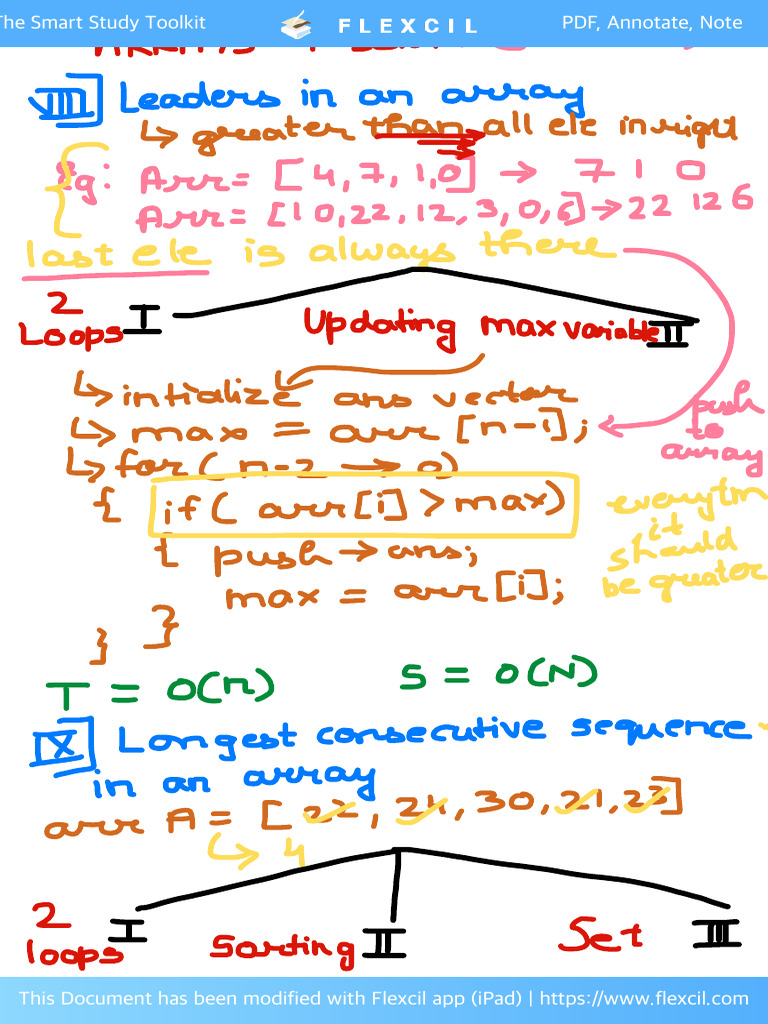 The Smart Study Toolkit FLEXCIL PDF, Annotate, Note
VIII Leaders in an array
↳ greater than all ele in right
Eg: Arr = [4, 7, 1, 0] → 7 1 0
Arr = [10, 22, 12, 3, 0, 6] → 22 12 6
last ele is always there
2 Loops I
Updating max variable II
↳ intialize ans vector
↳ max = arr [n-1];
push to array
↳ for ( n-2 → 0)
{ if ( arr[i] > max)
{ push → ans;
max = arr[i];
}
}
it should be greater
T = O(n) S = O(N)
IX Longest consecutive sequence
in an array
arr A = [22, 24, 30, 21, 23]
↳ 4
2 loops I
Sorting II
Set III
This Document has been modified with Flexcil app (iPad) | https://www.flexcil.com